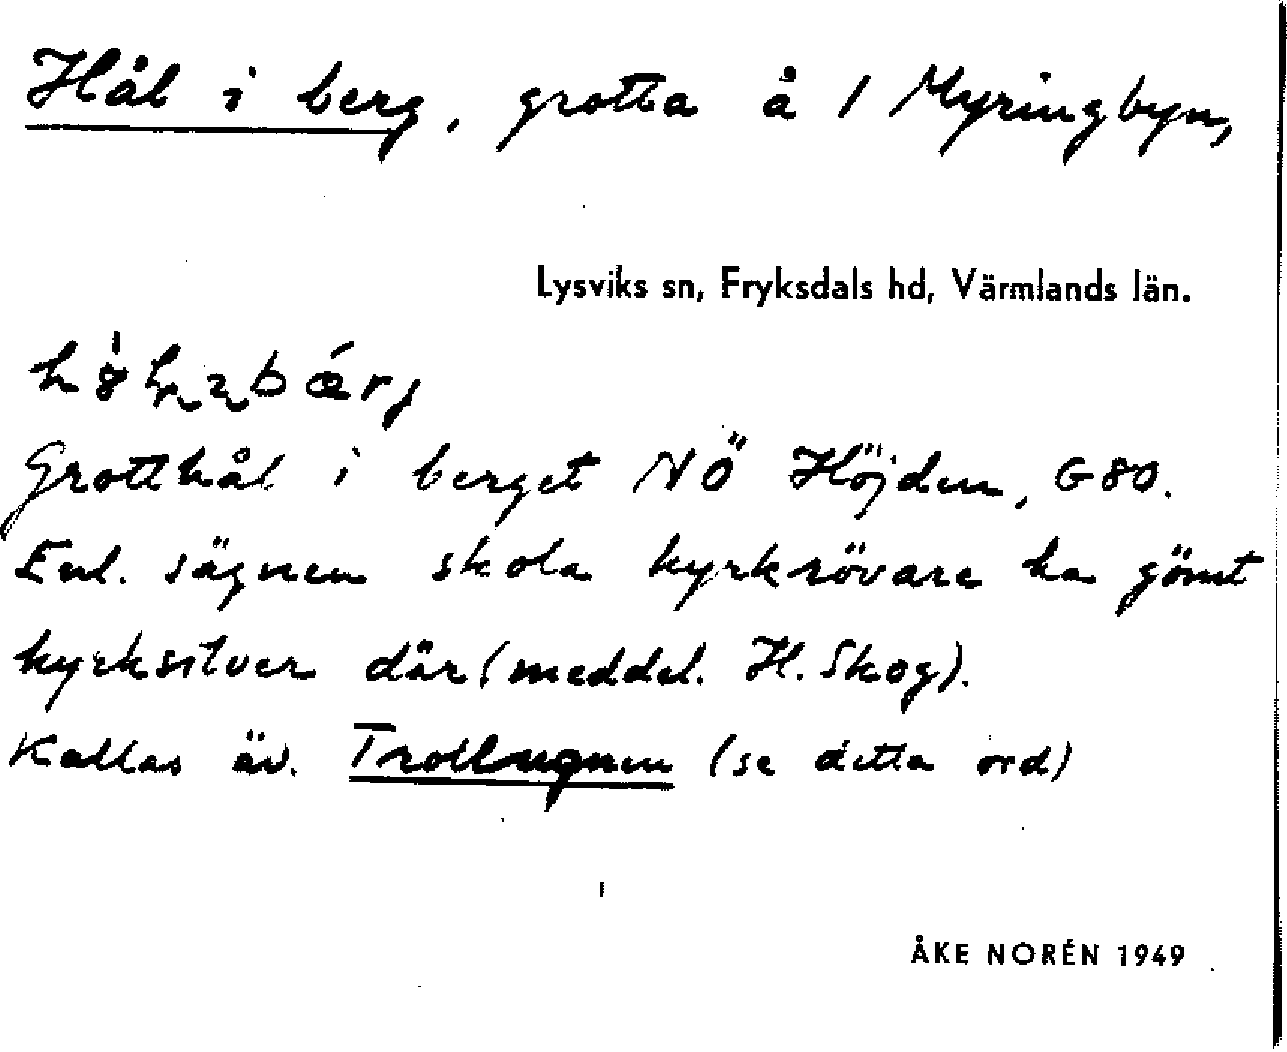 Hål i berg, grotta å 1 Myringbyn,
Lysviks sn, Fryksdals hd, Värmlands län.
Grotthål i berget NÖ Höjden, G80.
Enl. sägnen skola kyrkrövare ha gömt
kyrksilver där (meddel. H. Skog).
Kallas äv. Trollugnen (se detta ord)
ÅKE NORÉN 1949